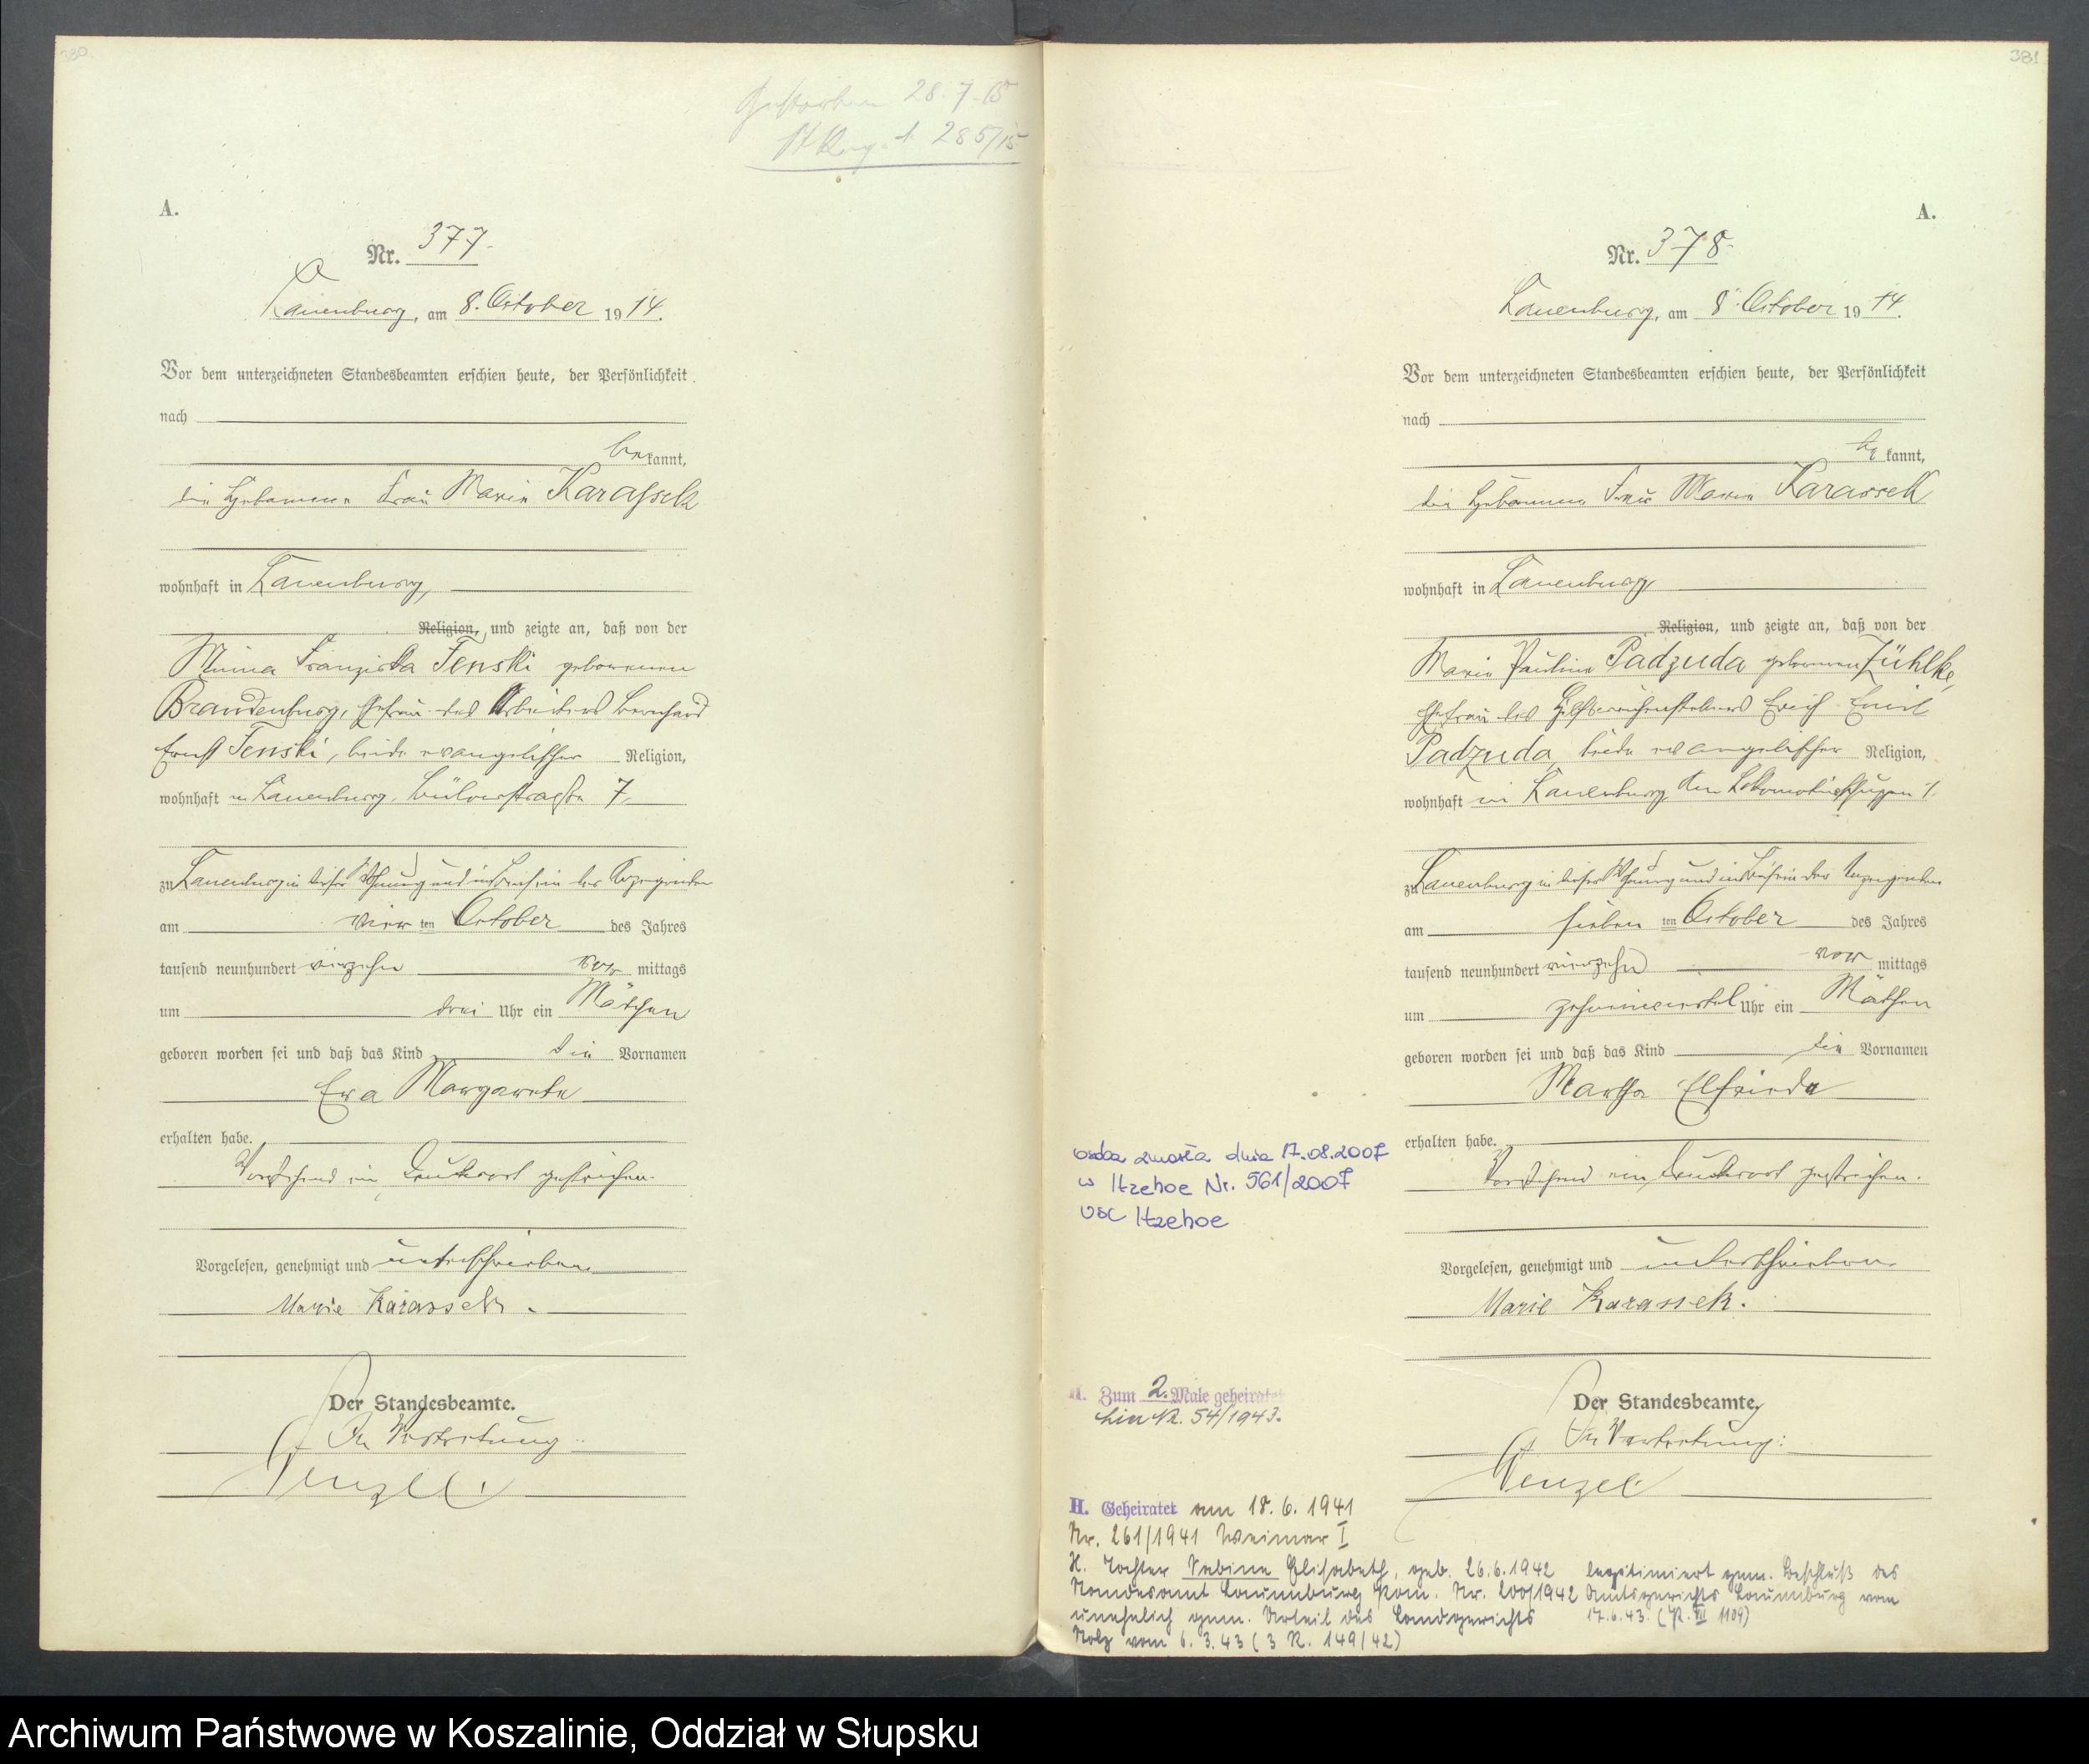 380.
Gestorben 28.7.15
St. Reg. 285/15
A.
Nr. 377.
Lauenburg, am 8. October 1914.
Vor dem unterzeichneten Standesbeamten erschien heute, der Persönlichkeit
nach
bekannt,
die Hebamme Frau Marie Karassek
wohnhaft in Lauenburg,
Religion, und zeigte an, daß von der
Minna Franziska Jenski geborenen
Brandenburg, Ehefrau des Arbeiters Bernhard
Ernst Jenski, beide evangelischer Religion,
wohnhaft in Lauenburg, Bülowstraße 7,
zu Lauenburg in dieser Wohnung und im Beisein der Anzeigenden
am vierten October des Jahres
tausend neunhundert vierzehn vormittags
um drei Uhr ein Mädchen
geboren worden sei und daß das Kind die Vornamen
Eva Margarete
erhalten habe.
Vorstehend ein Druckwort gestrichen.
Vorgelesen, genehmigt und unterschrieben
Marie Karassek.
Der Standesbeamte.
In Vertretung:
Wenzel.
381
A.
Nr. 378.
Lauenburg, am 8. October 1914.
Vor dem unterzeichneten Standesbeamten erschien heute, der Persönlichkeit
nach
bekannt,
die Hebamme Frau Marie Karassek
wohnhaft in Lauenburg
Religion, und zeigte an, daß von der
Marie Pauline Padzuda geborenen Zühlke,
Ehefrau des Hilfsweichenstellers Erich Emil
Padzuda, beide evangelischer Religion,
wohnhaft in Lauenburg, Am Lokomotivschuppen 1.
zu Lauenburg in dieser Wohnung und im Beisein der Anzeigenden
am siebenten October des Jahres
tausend neunhundert vierzehn vormittags
um Uhr ein Mädchen
geboren worden sei und daß das Kind die Vornamen
Martha Elfriede
erhalten habe.
Vorstehend ein Druckwort gestrichen.
Vorgelesen, genehmigt und unterschrieben
Marie Karassek.
Der Standesbeamte.
In Vertretung:
Wenzel.
osoba zmarła dnia 17.08.2007
w Itzehoe Nr. 561/2007
USC Itzehoe
H. Zum 2. Male geheiratet
hier Nr. 54/1943.
H. Geheiratet am 18.6.1941
Nr. 261/1941 Weimar I
H. Tochter Sabine Elisabeth, geb. 26.6.1942
Standesamt Lauenburg Pom. Nr. 200/1942
unehelich gem. Urteil des Landgerichts
Stolp vom 6.3.43 (3 R. 149/42)
legitimiert gem. Beschluß des
Amtsgerichts Lauenburg vom
17.6.43. ( VIII 1109)
Archiwum Państwowe w Koszalinie, Oddział w Słupsku